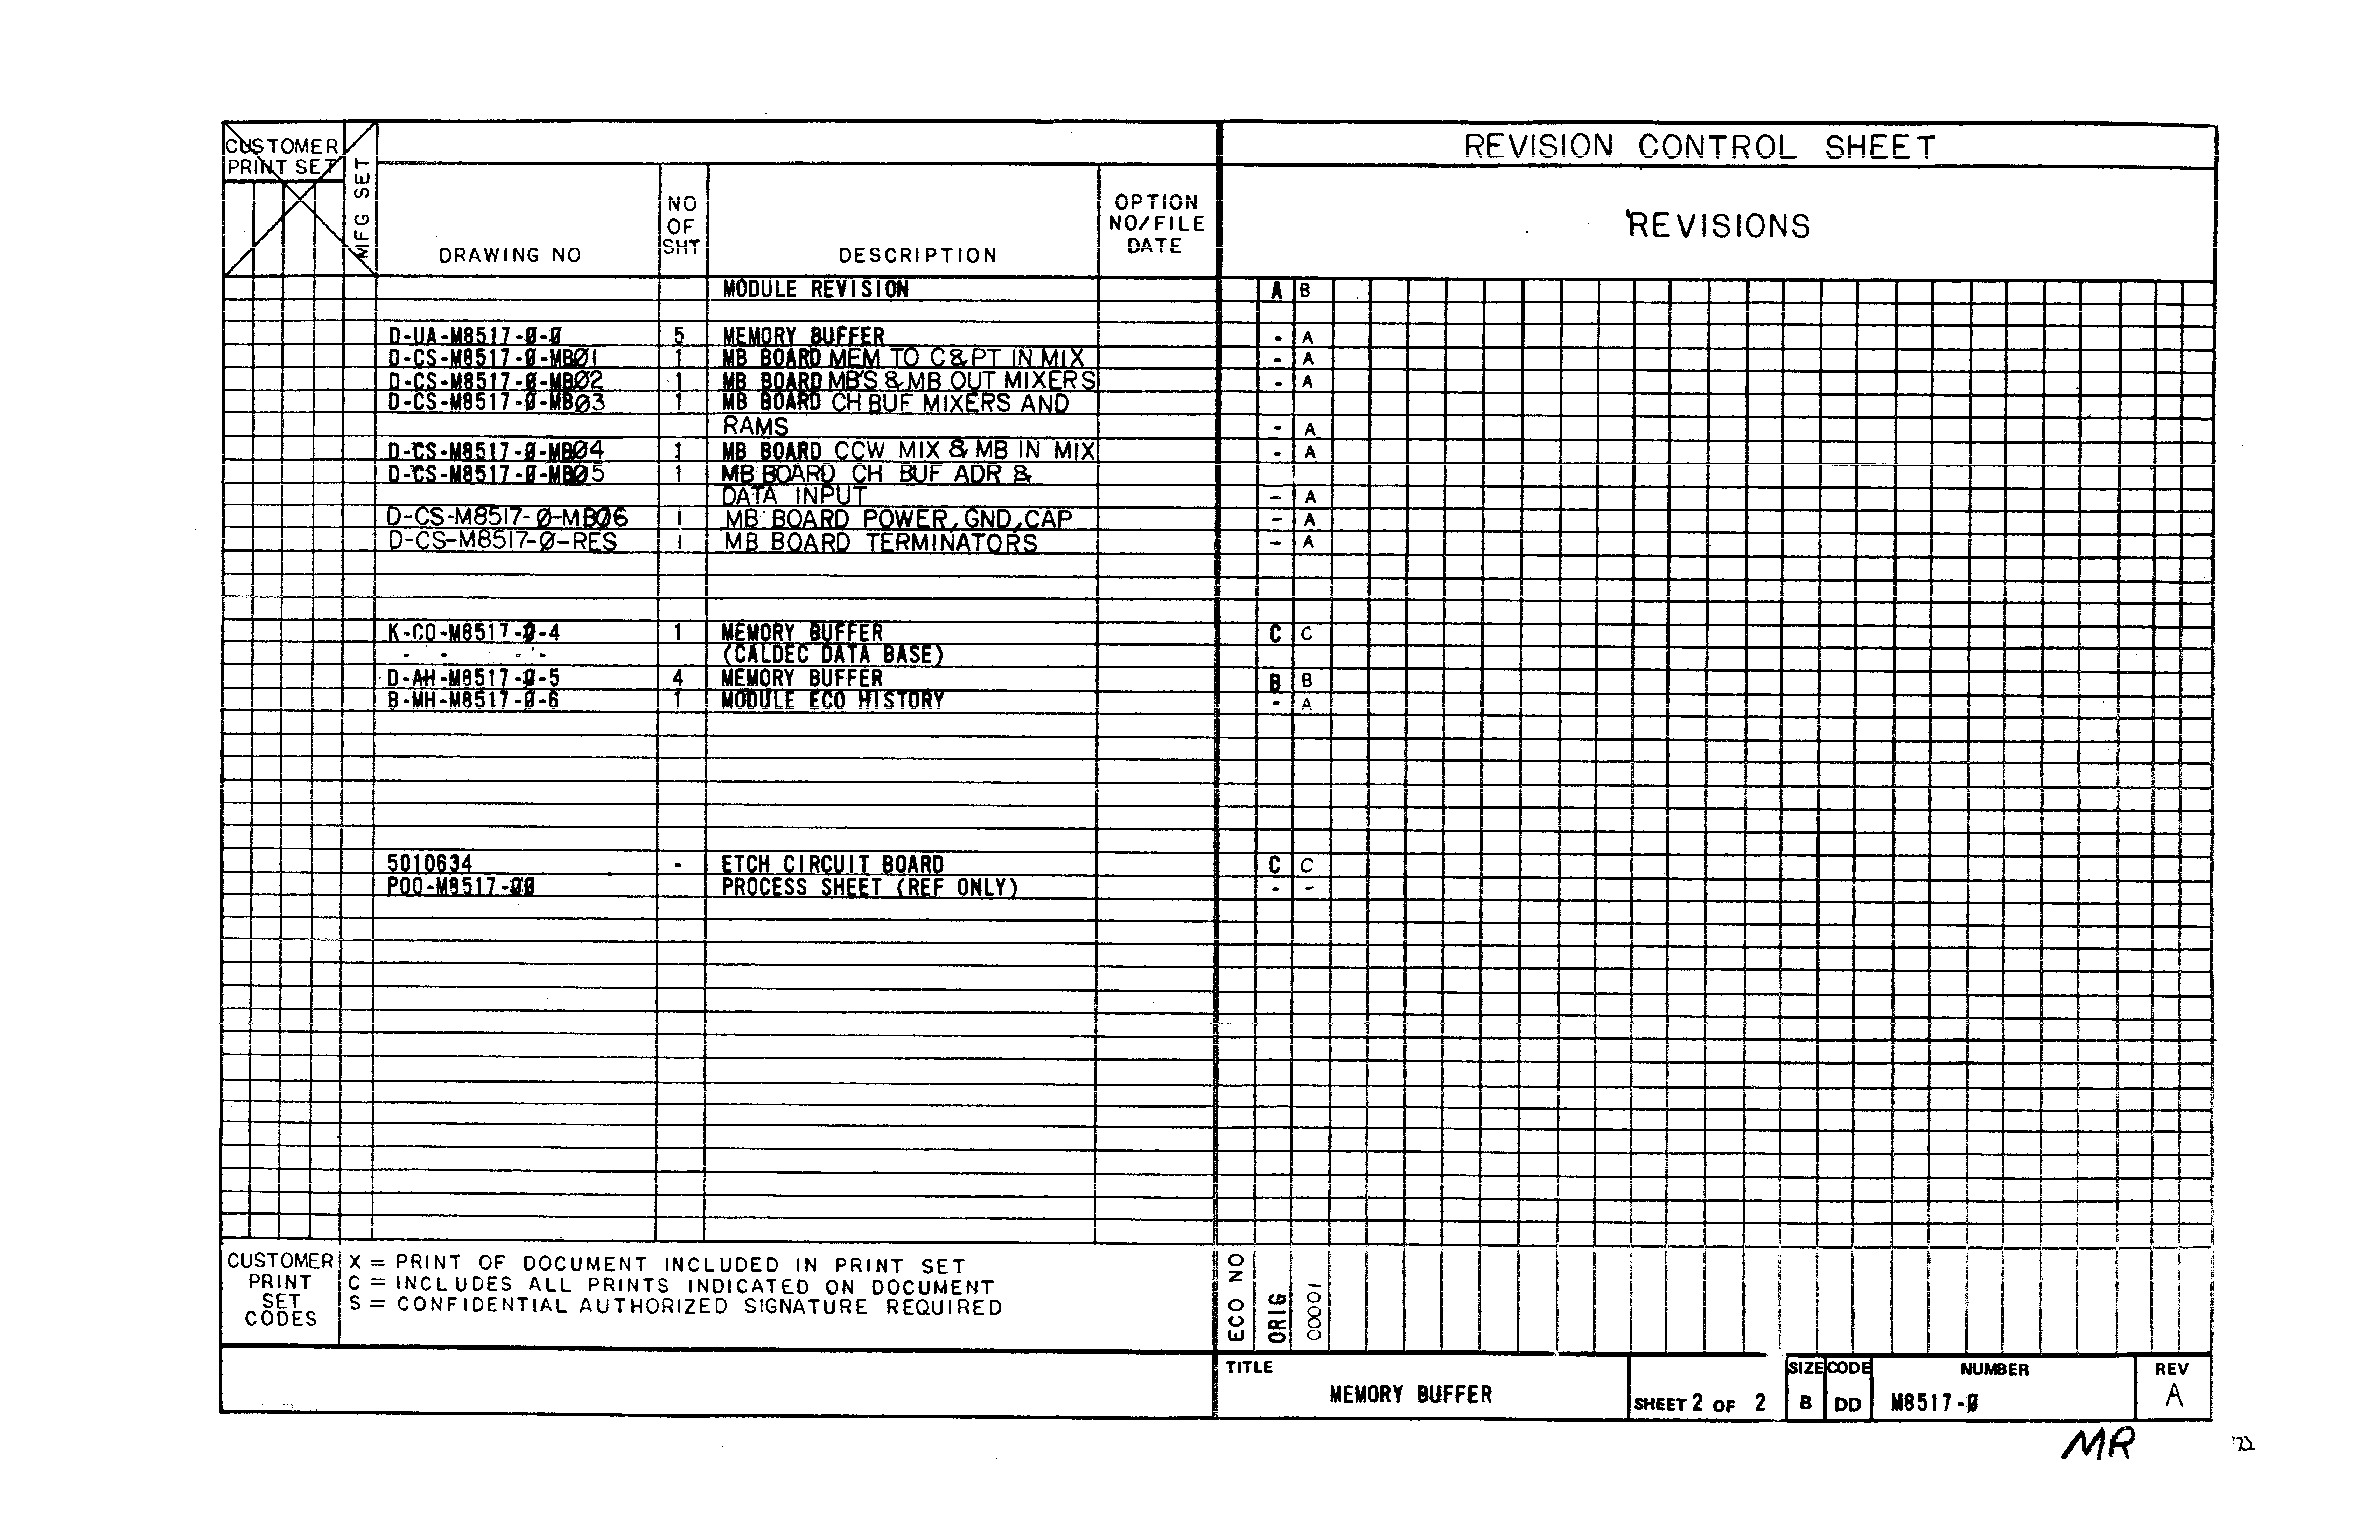 CUSTOMER
PRINT SET
MFG SET
DRAWING NO
NO
OF
SHT
DESCRIPTION
OPTION
NO/FILE
DATE
REVISION CONTROL SHEET
REVISIONS
MODULE REVISION A B
D-UA-M8517-0-0 5 MEMORY BUFFER - A
D-CS-M8517-0-MB01 1 MB BOARD MEM TO C&PT IN MIX - A
D-CS-M8517-0-MB02 1 MB BOARD MB'S & MB OUT MIXERS - A
D-CS-M8517-0-MB03 1 MB BOARD CH BUF MIXERS AND
RAMS - A
D-CS-M8517-0-MB04 1 MB BOARD CCW MIX & MB IN MIX - A
D-CS-M8517-0-MB05 1 MB BOARD CH BUF ADR &
DATA INPUT - A
D-CS-M8517-0-MB06 1 MB BOARD POWER, GND, CAP - A
D-CS-M8517-0-RES 1 MB BOARD TERMINATORS - A
K-CO-M8517-0-4 1 MEMORY BUFFER C C
(CALDEC DATA BASE)
D-AH-M8517-0-5 4 MEMORY BUFFER B B
B-MH-M8517-0-6 1 MODULE ECO HISTORY - A
5010634 - ETCH CIRCUIT BOARD C C
P00-M8517-00 PROCESS SHEET (REF ONLY) - -
CUSTOMER
PRINT
SET
CODES
X = PRINT OF DOCUMENT INCLUDED IN PRINT SET
C = INCLUDES ALL PRINTS INDICATED ON DOCUMENT
S = CONFIDENTIAL AUTHORIZED SIGNATURE REQUIRED
ECO NO
ORIG
00001
TITLE
MEMORY BUFFER
SHEET 2 OF 2
SIZE
B
CODE
DD
NUMBER
M8517-0
REV
A
MR